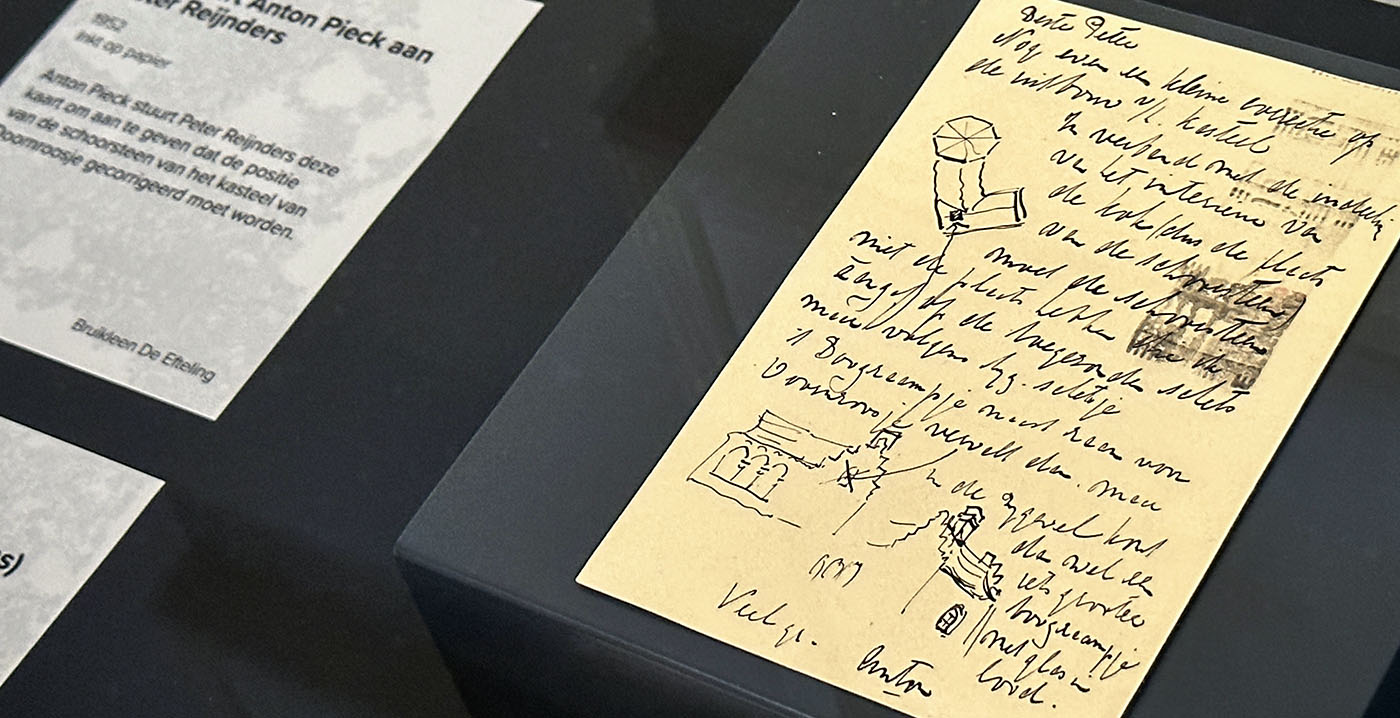 t Anton Pieck aan
ter Reijnders
1952
Inkt op papier
Anton Pieck stuurt Peter Reijnders deze
kaart om aan te geven dat de positie
van de schoorsteen van het kasteel van
Doornroosje gecorrigeerd moet worden.
Bruikleen De Efteling
s)
Beste Peter
Nog even een kleine correctie op
de uitbouw v/h kasteel
In verband met de indeling
van het interieur van
de kok (dus de plaats
van de schoorsteen)
moet de schoorsteen
niet de plaats hebben die de
op de toegezonden schets
maar volgens schetsje
1 Boograampje naast raam van
Doornroosje vervalt dan. maar
in de zijgevel komt
dan wel een
iets groter
boograampje
met glas in
lood.
Veel gr.
Anton